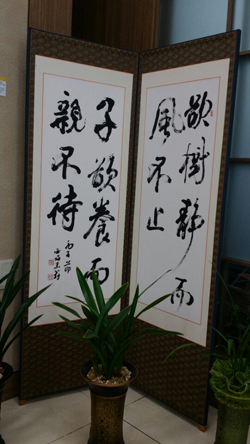 欲樹靜而
風不止
子欲養而
親不待